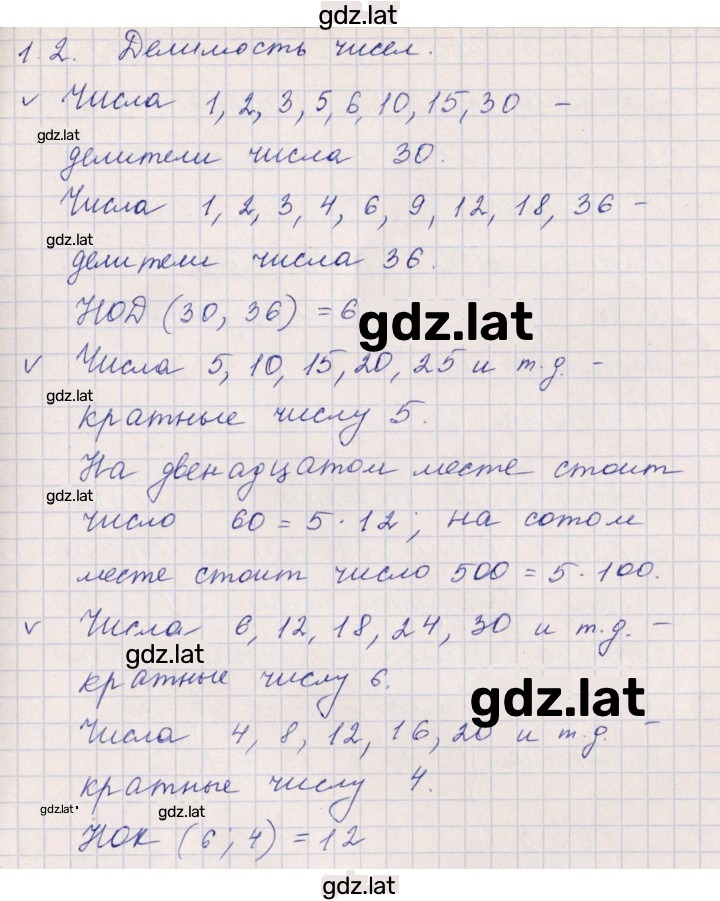 gdz.lat
1.2. Делимость чисел.
√ Числа 1, 2, 3, 5, 6, 10, 15, 30 –
gdz.lat
делители числа 30.
Числа 1, 2, 3, 4, 6, 9, 12, 18, 36 –
gdz.lat
делители числа 36.
НОД (30, 36) = 6
gdz.lat
√ Числа 5, 10, 15, 20, 25 и т.д. –
gdz.lat
кратные числу 5.
На двенадцатом месте стоит
gdz.lat
число 60 = 5 · 12; на сотом
месте стоит число 500 = 5 · 100.
√ Числа 6, 12, 18, 24, 30 и т.д. –
gdz.lat
кратные числу 6.
gdz.lat
Числа 4, 8, 12, 16, 20 и т.д. –
кратные числу 4.
gdz.lat
gdz.lat
НОК (6; 4) = 12
gdz.lat